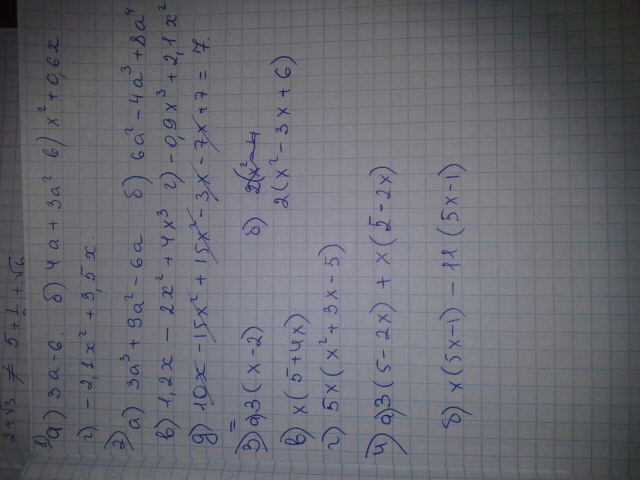 2+√3 ≠ 5+1+√6
1) а) 3a-6. б) 4a+3a² в) x²+0,6x
г) -2,1x²+3,5x.
2) а) 3a³+9a²-6a б) 6a²-4a³+8a⁴
в) 1,2x-2x²+4x³ г) -0,9x³+2,1x²
д) 10x-15x²+15x²-3x-7x+7=7.
3) а) 3(x-2) б) 2(x²-4
2(x²-3x+6)
в) x(5+4x)
г) 5x(x²+3x-5)
4) а) 3(5-2x)+x(5-2x)
б) x(5x-1)-11(5x-1)